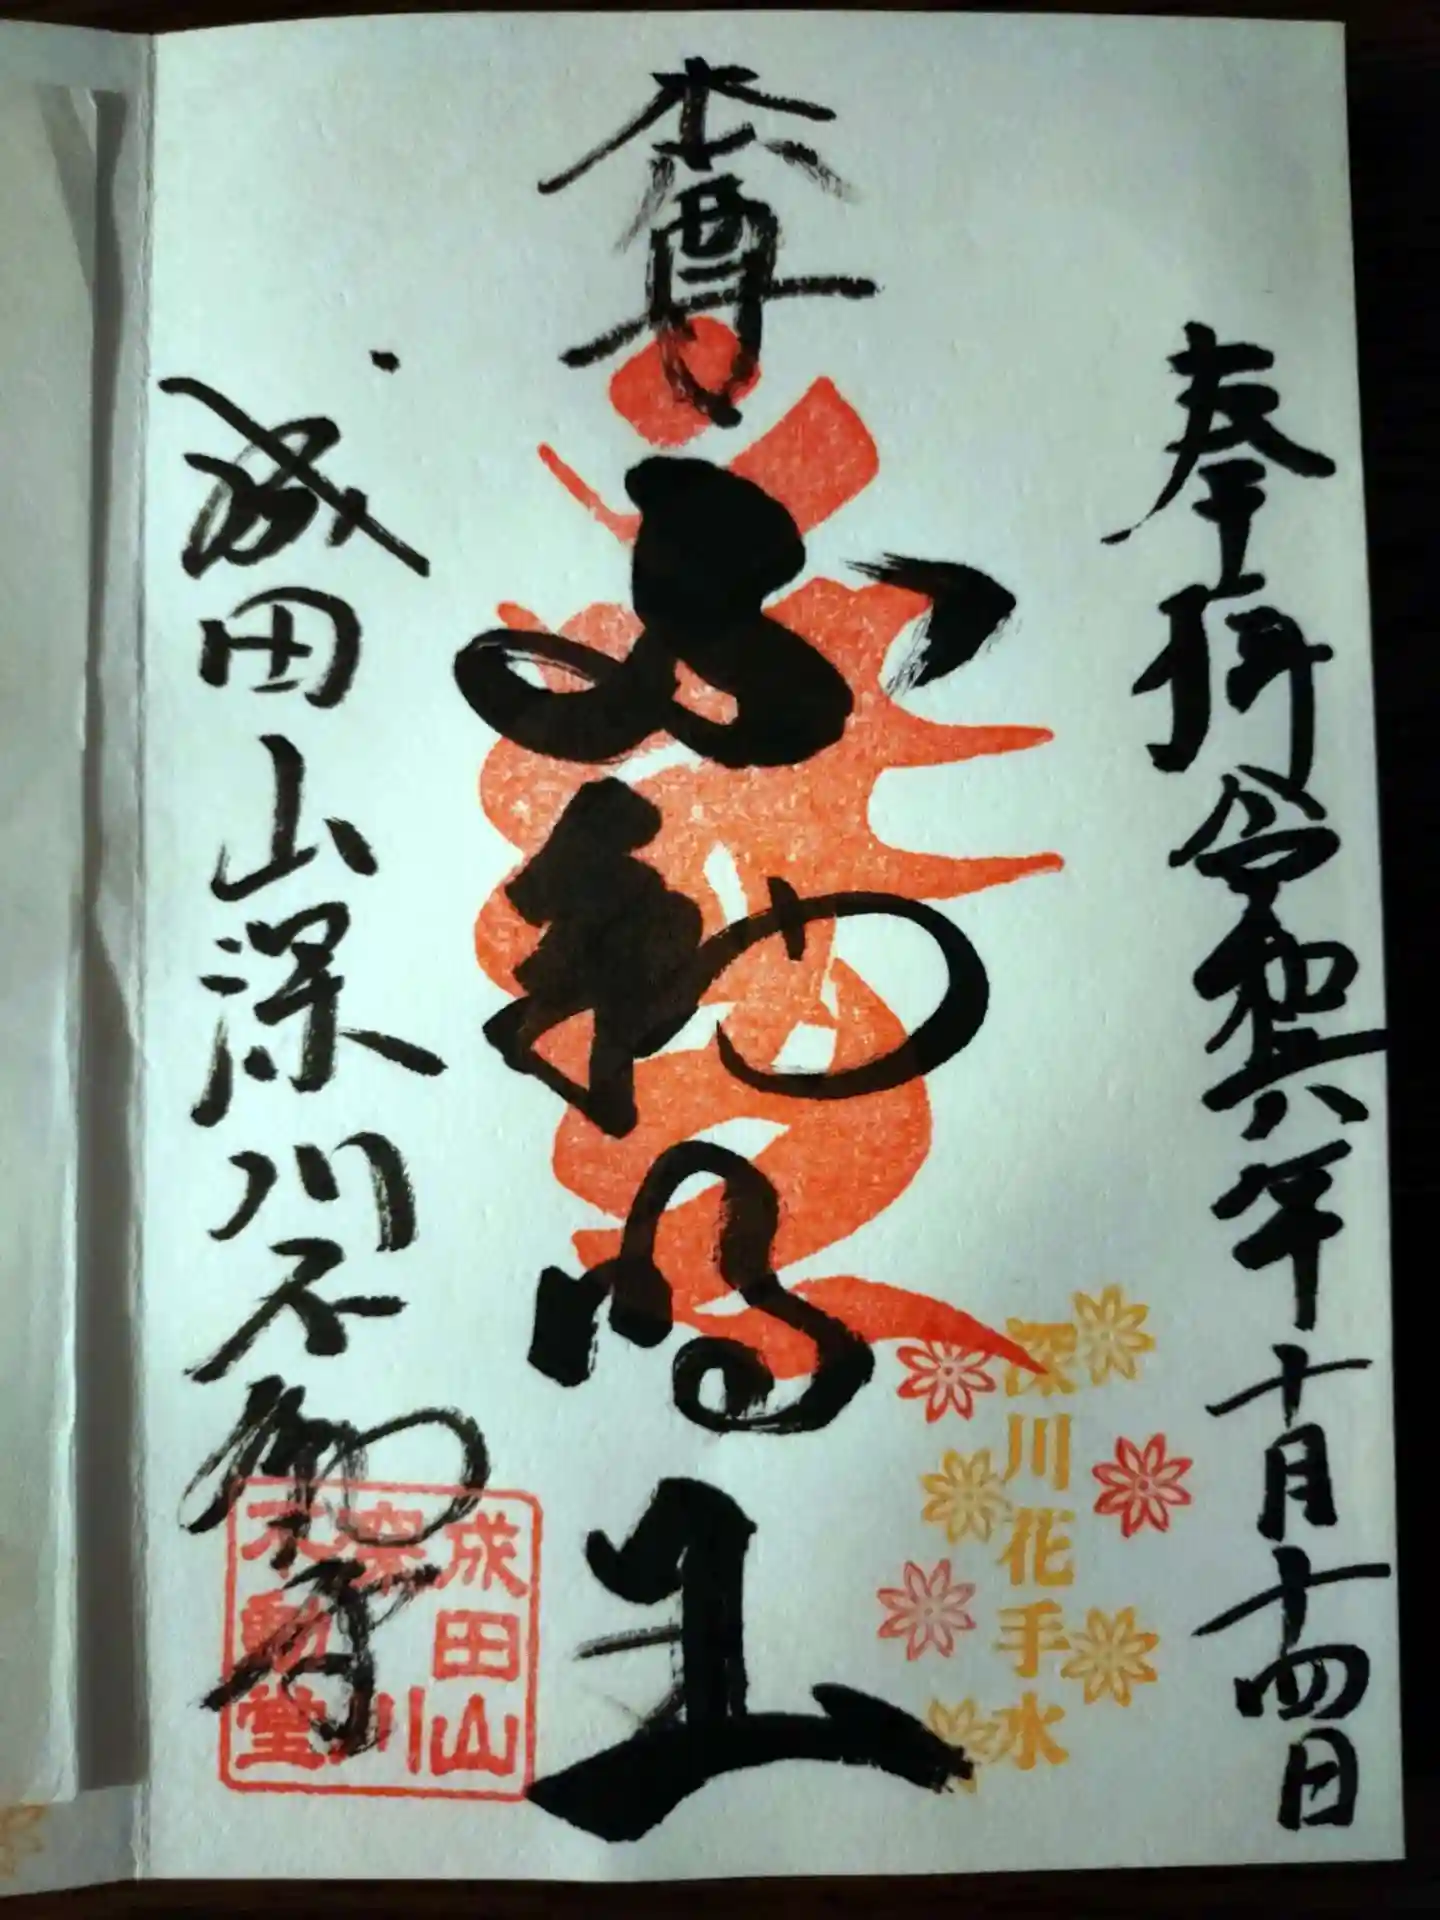 奉拝 令和六年十月十四日
深川花手水
本尊
不動明王
成田山深川不動堂
成田山
深川
不動堂